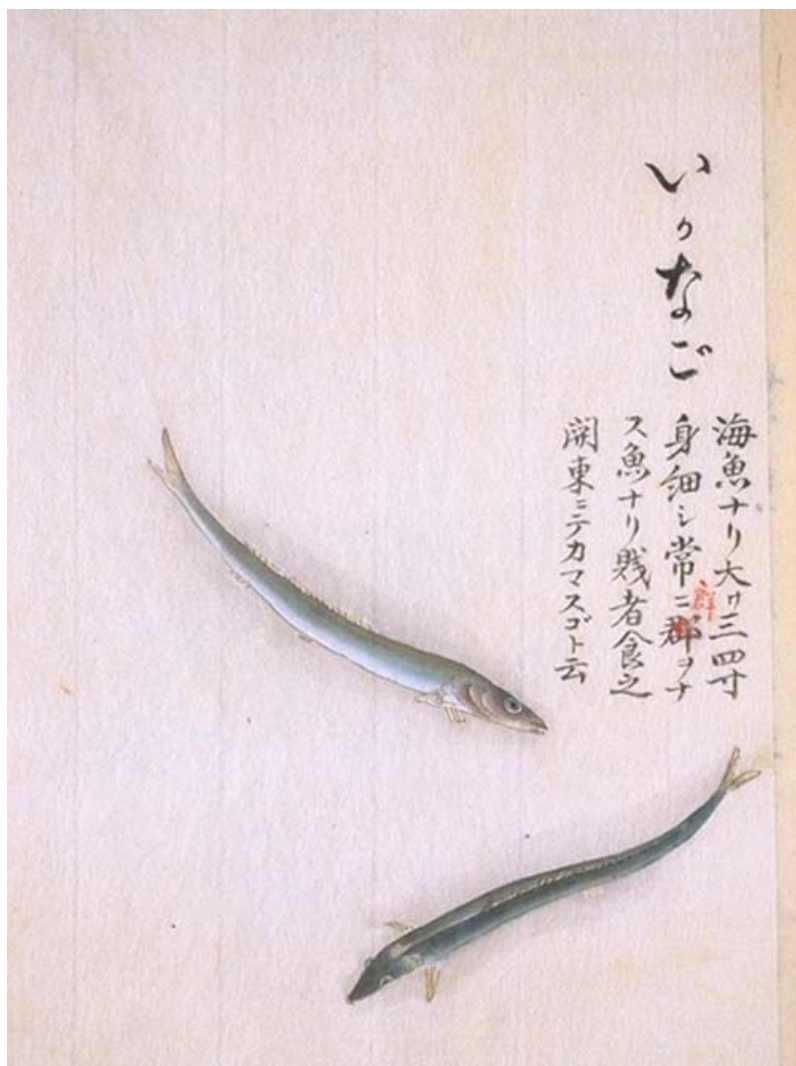 いかなご
海魚ナリ大サ三四寸
身細シ常ニ郡ヲナ
群
ス魚ナリ賎者食之
関東ニテカマスゴト云